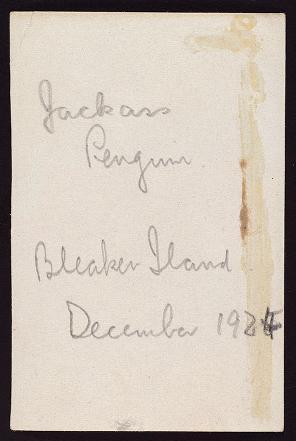 Jackass
Penguin
Bleaker Iland
December 192